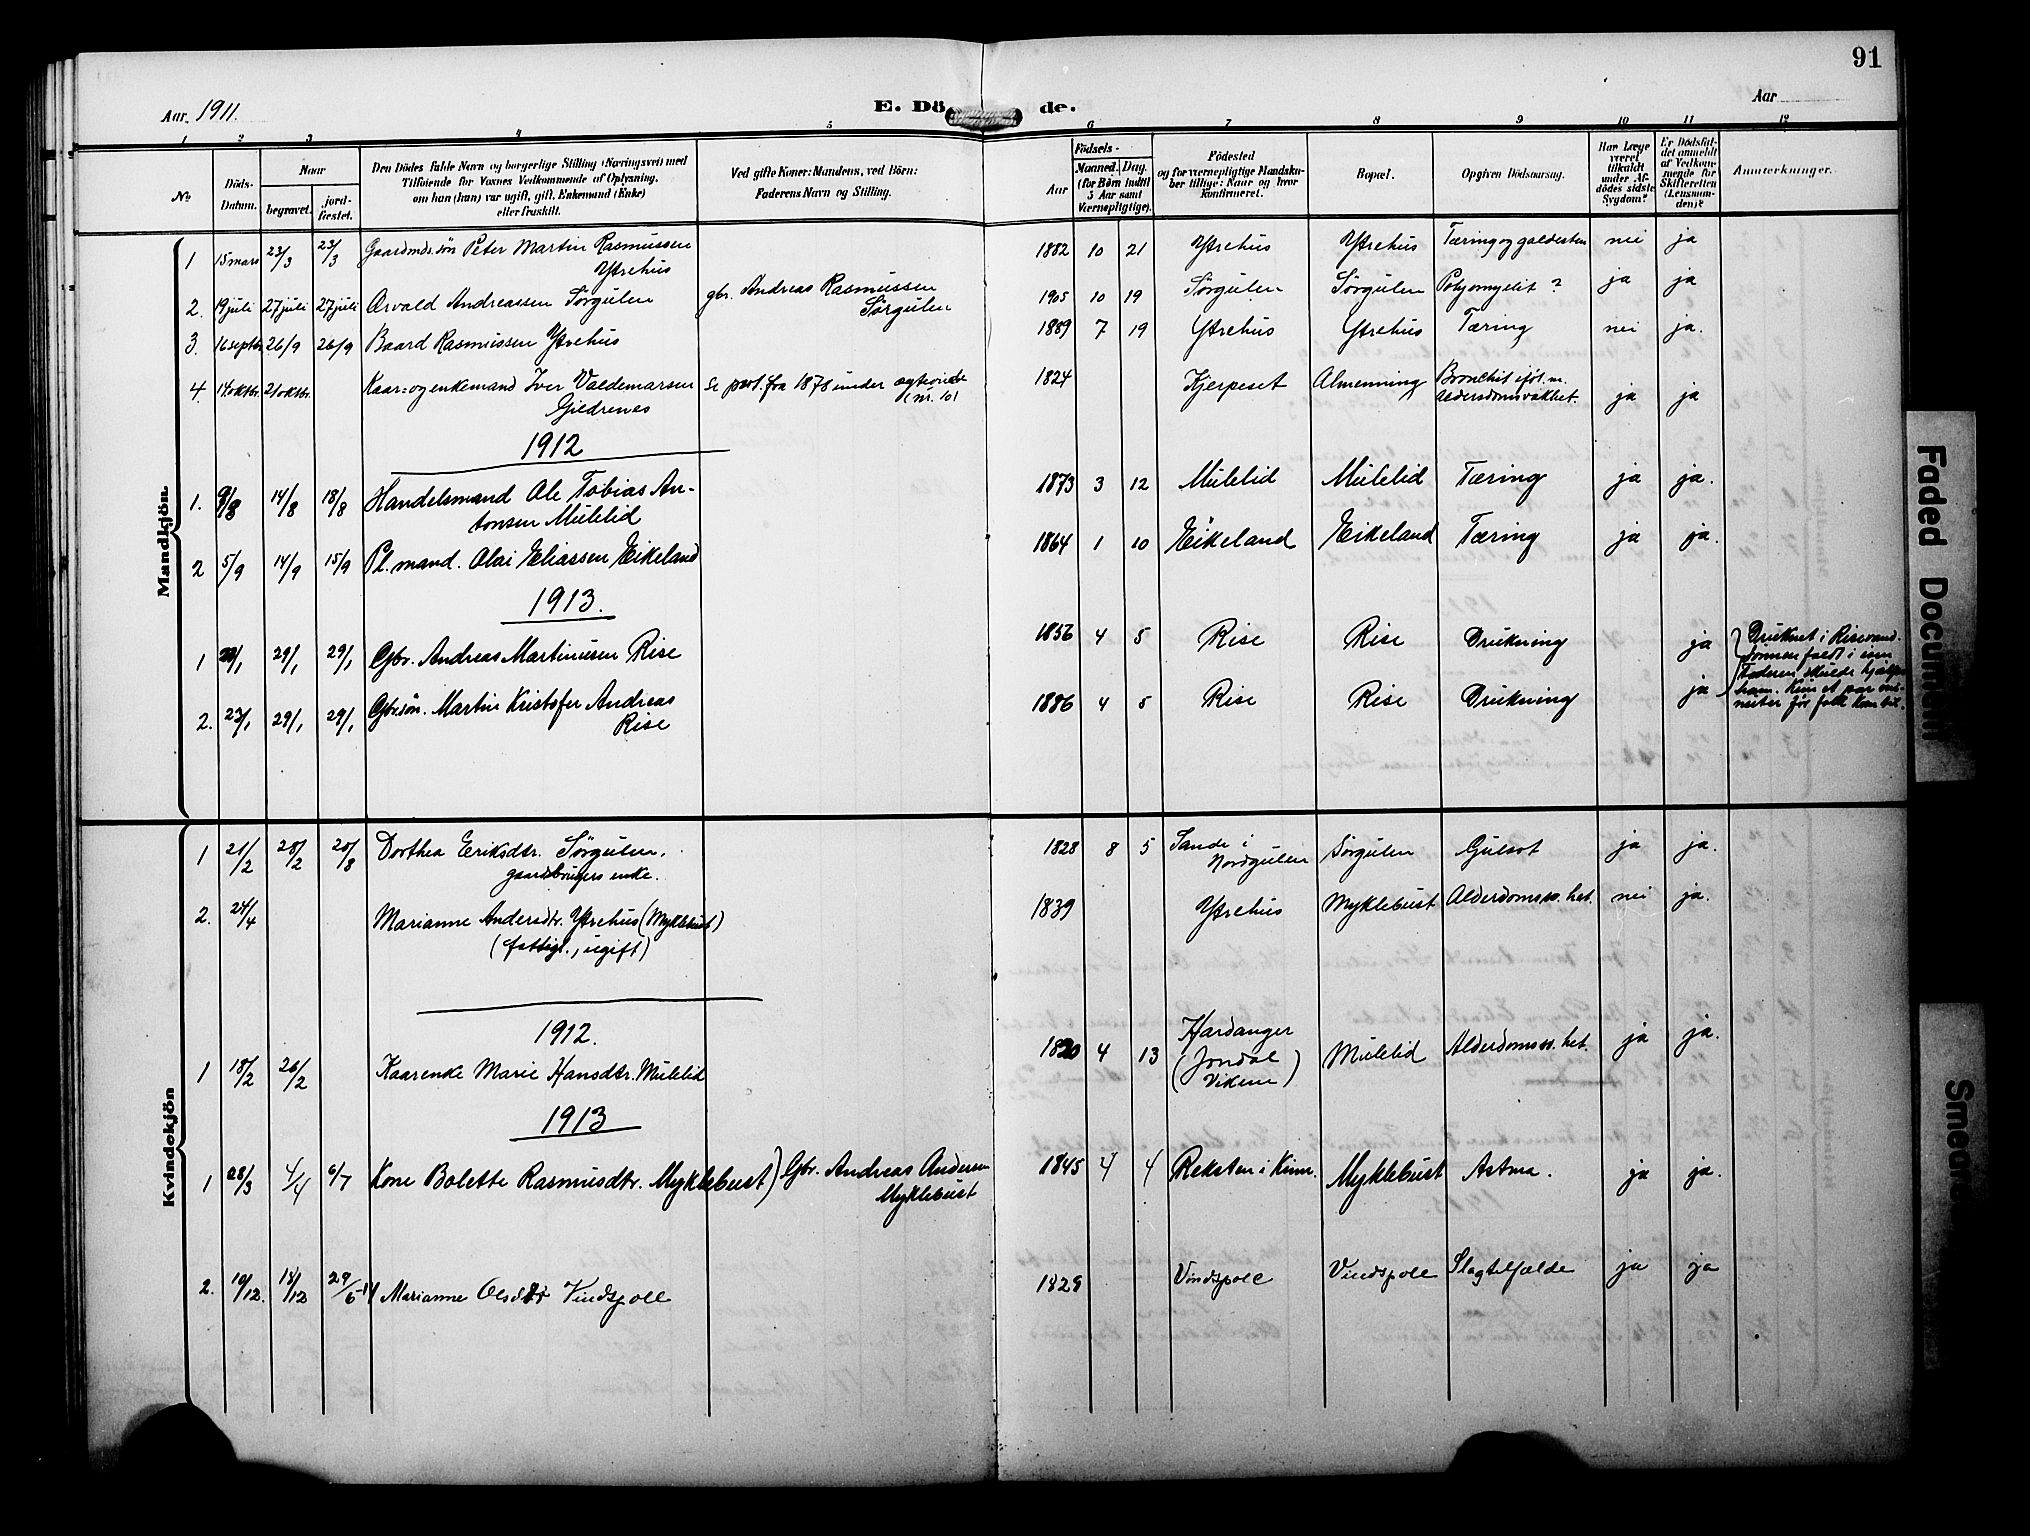 91
Aar 1911. E. Dö de. Aar
1 2 3 4 5 6 7 8 9 10 11 12
No
Döds-Datum.
Naar
begravet.
jord-fæstet.
Den Dödes fulde Navn og borgerlige Stilling (Næringsvei) med
Tilföiende for Voxnes Vedkommende af Oplysning,
om han (hun) var ugift, gift, Enkemand (Enke)
eller fraskilt.
Ved gifte Koner: Mandens, ved Börn:
Faderens Navn og Stilling.
Födsels-
Aar
Maaned. Dag.
(for Børn indtil
5 Aar samt
Værnepligtige).
Födested
og for værnepligtige Mandska-
ber tillige: Naar og hvor
konfirmeret.
Bopæl.
Opgiven Dödsaarsag.
Har Læge
været
tilkaldt
under Af-
dödes sidste
Sygdom?
Er Dödsfal-
det anmeldt
af Vedkom-
mende for
Skifteretten
(Lensman-
den)?
Anmerkninger.
Mandkjön
1 15 mars 23/3 23/3 Gaardmds.søn Peter Martin Rasmussen 1882 10 21 Ytrehus Ytrehus Tæring og galdesten nei ja
Ytrehus
2. 19 juli 27 juli 27 juli Osvald Andreassen Sørgulen gbr. Andreas Rasmussen 1905 10 19 Sørgulen Sørgulen Polyomyelit ? ja ja
Sørgulen
3. 16 septbr. 26/9 26/9 Baard Rasmussen Ytrehus 1889 7 19 Ytrehus Ytrehus Tæring nei ja.
4. 14 oktbr. 21 oktbr. Kaar= og enkemand Iver Valdemarsen Se prot. fra 1878 under ægteviede 1824 Kjerpeset Almenning Bronchit iføl. m.
Gjedrenes (nr. 10) Aldersdomsvakhet. ja ja
1912
1. 9/8 14/8 18/8 Handelsmand Ole Tobias An- 1873 3 12 Mulelid Mulelid Tæring ja ja.
tonsen Mulelid
2 5/9 14/9 15/9 Pl.mand. Olai Eliassen Eikeland 1864 1 10 Eikeland Eikeland Tæring ja ja.
1913.
1 29/1 29/1 Gbr. Andreas Martinusen Rise 1856 4 5 Rise Rise Drukning ja Druknet i Risevand.
Sønnen faldt i isen
Faderen skulde hjælpe
2. 23/1 29/1 29/1 Gbr.søn. Martin Kristofer Andreas 1886 4 5 Rise Rise Drukning ja ham. Kun et par mi-
Rise nuter før folk kom til.
Kvindekjön
1 21/2 28/2 20/8 Dorthea Eriksdtr. Sørgulen, 1828 8 5 Sande i Sørgulen Gulsot ja ja.
gaardbrugers enke. Nordgulen
2. 24/4 Marianne Andersdtr. Ytrehus (Myklebust) 1839 Ytrehus Myklebust Alderdomssv.het. nei ja.
(fattigl., ugift)
1912.
1 18/2 26/2 Kaarenke Marie Hansdtr. Mulelid 1820 4 13 Hardanger Mulelid Alderdomssv.het. ja ja.
(Jondal
Viken)
1913
1 28/3 4/4 6/7 Kone Bolette Rasmusdtr. Myklebust) Gbr. Andreas Andersen 1845 4 4 Reksten i Kinn. Myklebust Astma. ja ja.
Myklebust
2. 10/12. 18/12 29/5-14 Marianne Olsdtr Vindspoll 1828 Vindspoll Vindspoll Slagtilfælde ja ja
Faded Document
Smeared